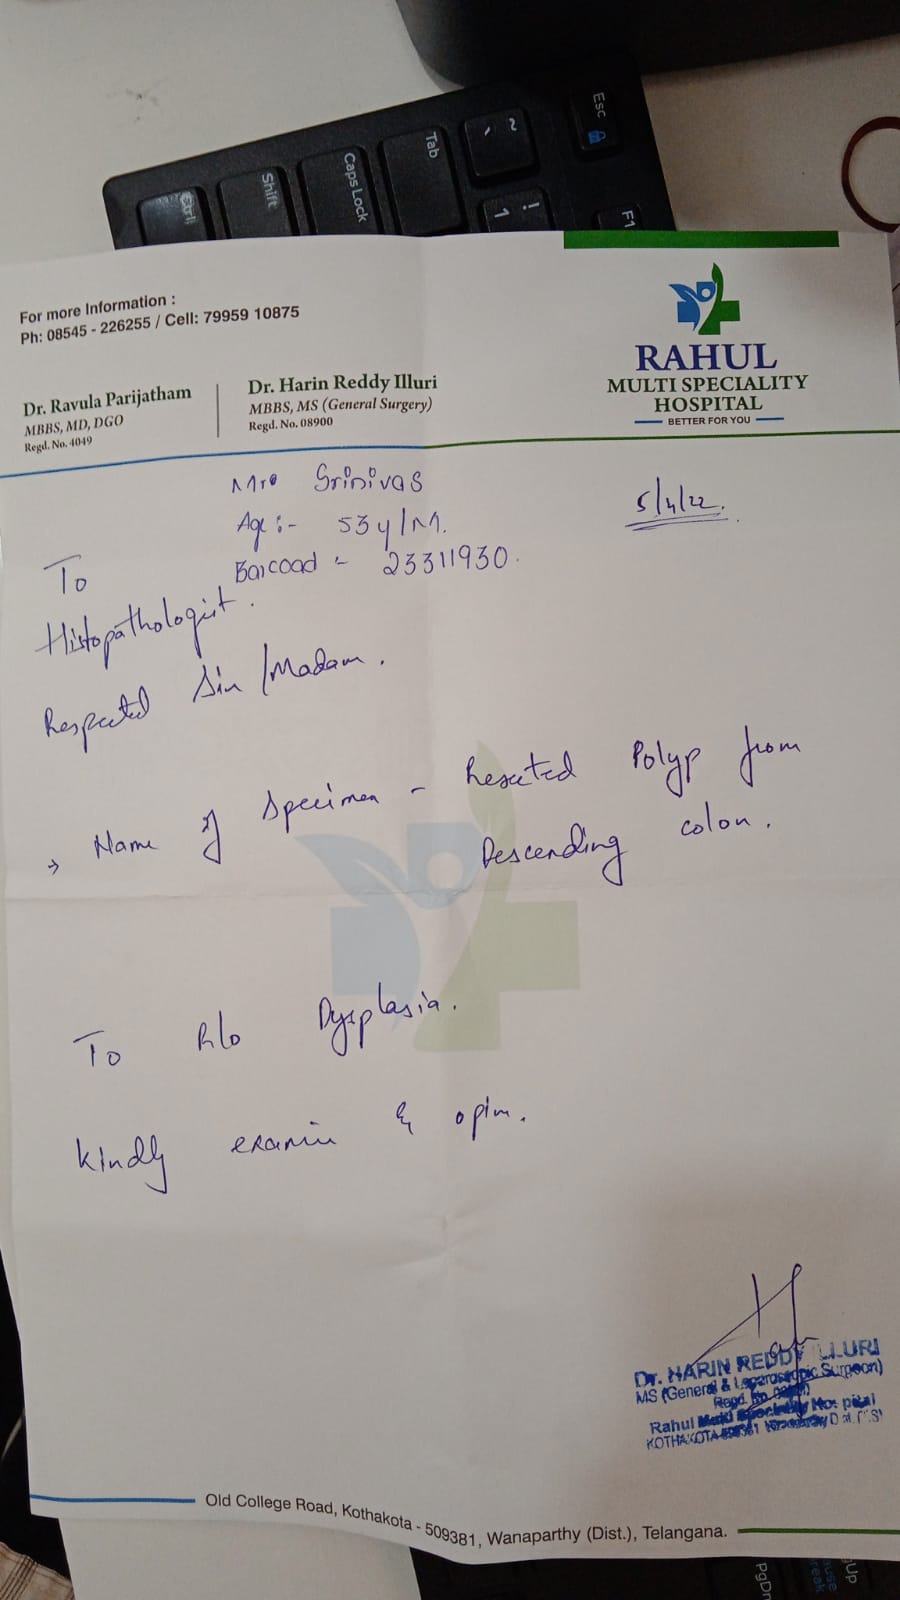 Esc
~
`
Tab
!
1
F1
Caps Lock
Shift
Ctrl
For more Information :
Ph: 08545 - 226255 / Cell: 79959 10875
RAHUL
MULTI SPECIALITY
HOSPITAL
BETTER FOR YOU
Dr. Ravula Parijatham
MBBS, MD, DGO
Regd. No. 4049
Dr. Harin Reddy Illuri
MBBS, MS (General Surgery)
Regd. No. 08900
Mr. Srinivas
5/4/22.
Age :- 53y/M.
Barcoad - 23311930.
To
Histopathologist.
Respected Sir/Madam.
→ Name of Specimen - Resected Polyp from
Descending colon.
To R/o Dysplasia.
Kindly examin & opin.
Dr. HARIN REDDY ILLURI
MS (General & Laparoscopic Surgeon)
Regd. No.
Rahul Multi Speciality Hospital
KOTHAKOTA
Old College Road, Kothakota - 509381, Wanaparthy (Dist.), Telangana.
PgDn